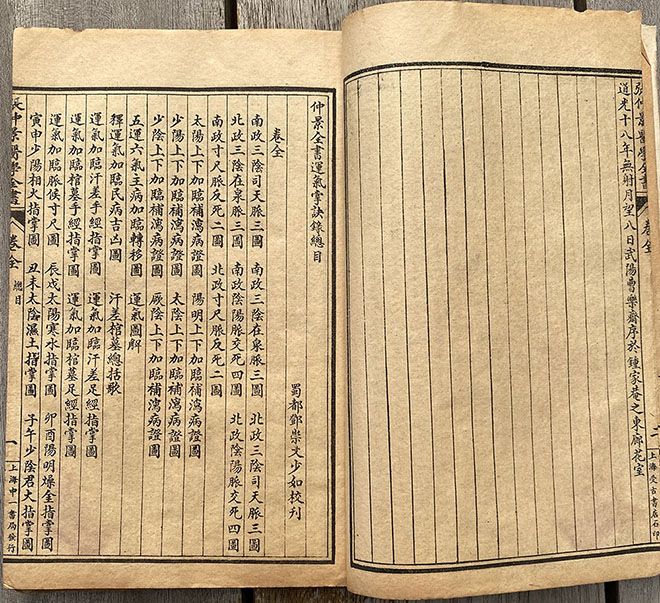 張仲景醫學全書 卷全 二 上海受古書店石印
道光十八年無射月望八日武陽曹樂齋序於鍾家菴之東廊花室
仲景全書運氣掌訣錄總目
蜀都鄧崇文少如校刊
卷全
南政三陰司天脈三圖 南政三陰在泉脈三圖 北政三陰司天脈三圖
北政三陰在泉脈三圖 南政陰陽脈交死四圖 北政陰陽脈交死四圖
南政寸尺脈反死二圖 北政寸尺脈反死二圖
太陽上下加臨補瀉病證圖 陽明上下加臨補瀉病證圖
少陽上下加臨補瀉病證圖 太陰上下加臨補瀉病證圖
少陰上下加臨補瀉病證圖 厥陰上下加臨補瀉病證圖
五運六氣主病加臨轉移圖 運氣圖解
釋運氣加臨民病吉凶圖 汗差棺墓總括歌
運氣加臨汗差手經指掌圖 運氣加臨汗差足經指掌圖
運氣加臨棺墓手經指掌圖 運氣加臨棺墓足經指掌圖
運氣加臨脈候寸尺圖 辰戌太陽寒水指掌圖 卯酉陽明燥金指掌圖
寅申少陽相火指掌圖 丑未太陰濕土指掌圖 子午少陰君火指掌圖
張仲景醫學全書 卷全 總目 一 上海中一書局發行